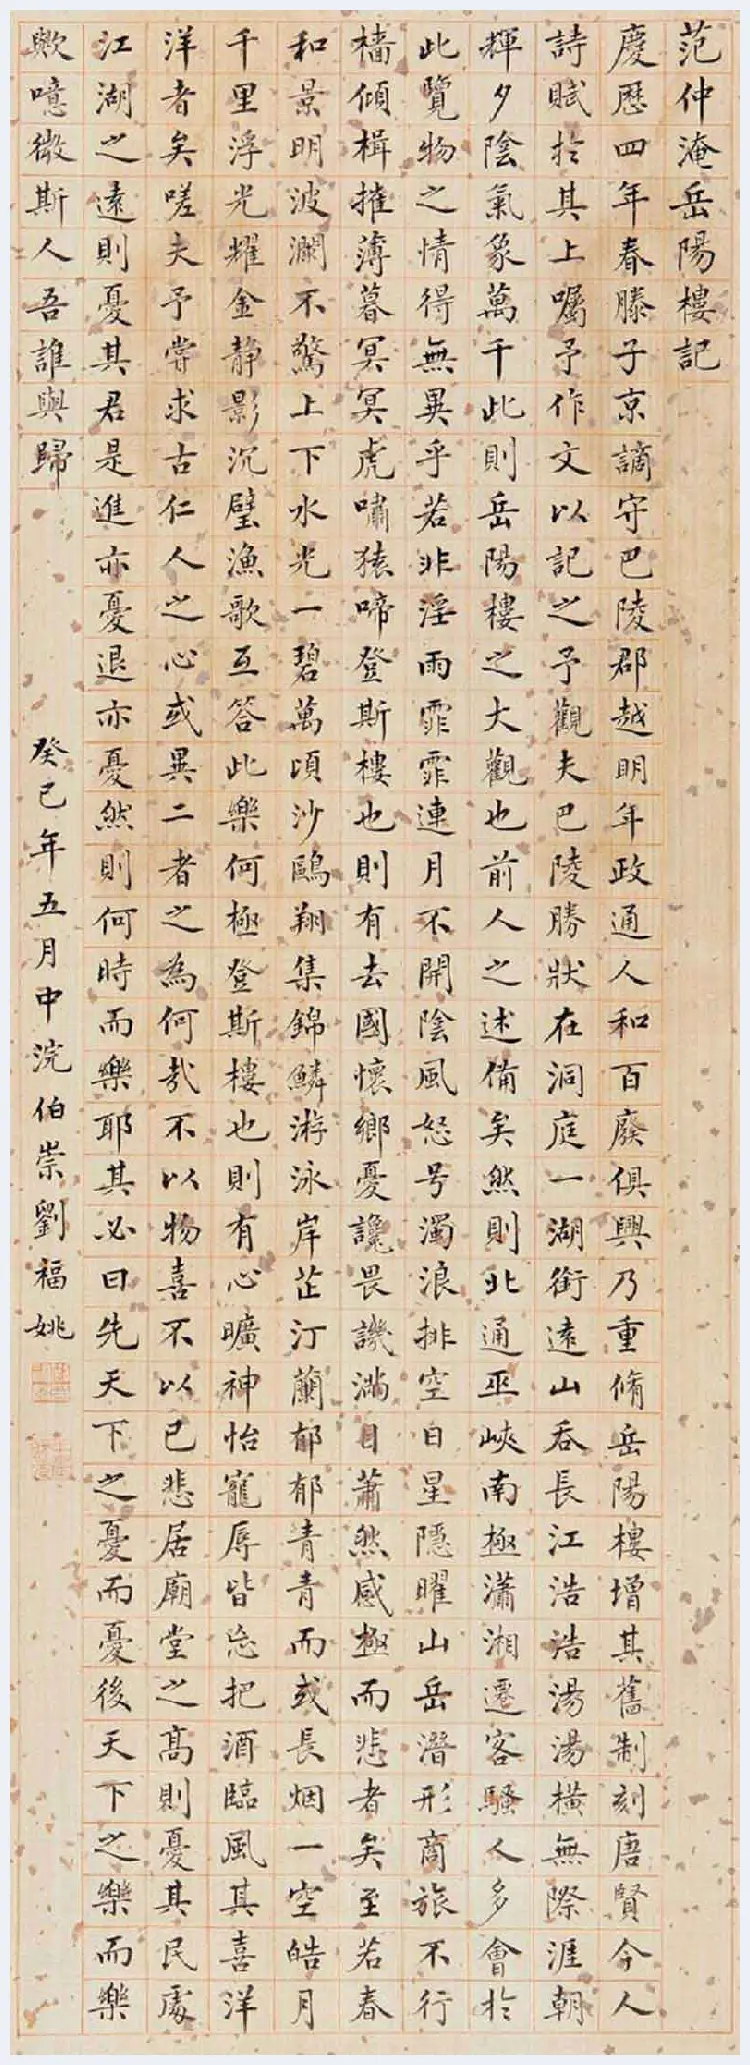 范仲淹岳陽樓記
慶歷四年春滕子京謫守巴陵郡越明年政通人和百廢俱興乃重脩岳陽樓增其舊制刻唐賢今人
詩賦於其上囑予作文以記之予觀夫巴陵勝狀在洞庭一湖銜遠山吞長江浩浩湯湯橫無際涯朝
輝夕陰氣象萬千此則岳陽樓之大觀也前人之述備矣然則北通巫峽南極瀟湘遷客騷人多會於
此覽物之情得無異乎若非淫雨霏霏連月不開陰風怒号濁浪排空日星隱曜山岳潛形商旅不行
檣傾楫摧薄暮冥冥虎嘯猿啼登斯樓也則有去國懷鄉憂讒畏譏滿目蕭然感極而悲者矣至若春
和景明波瀾不驚上下水光一碧萬頃沙鷗翔集錦鱗游泳岸芷汀蘭郁郁青青而或長烟一空皓月
千里浮光耀金静影沉璧漁歌互答此樂何極登斯樓也則有心曠神怡寵辱皆忘把酒臨風其喜洋
洋者矣嗟夫予嘗求古仁人之心或異二者之為何哉不以物喜不以己悲居廟堂之高則憂其民處
江湖之遠則憂其君是進亦憂退亦憂然則何時而樂耶其必曰先天下之憂而憂後天下之樂而樂
歟噫微斯人吾誰與歸
癸巳年五月中浣伯崇劉福姚